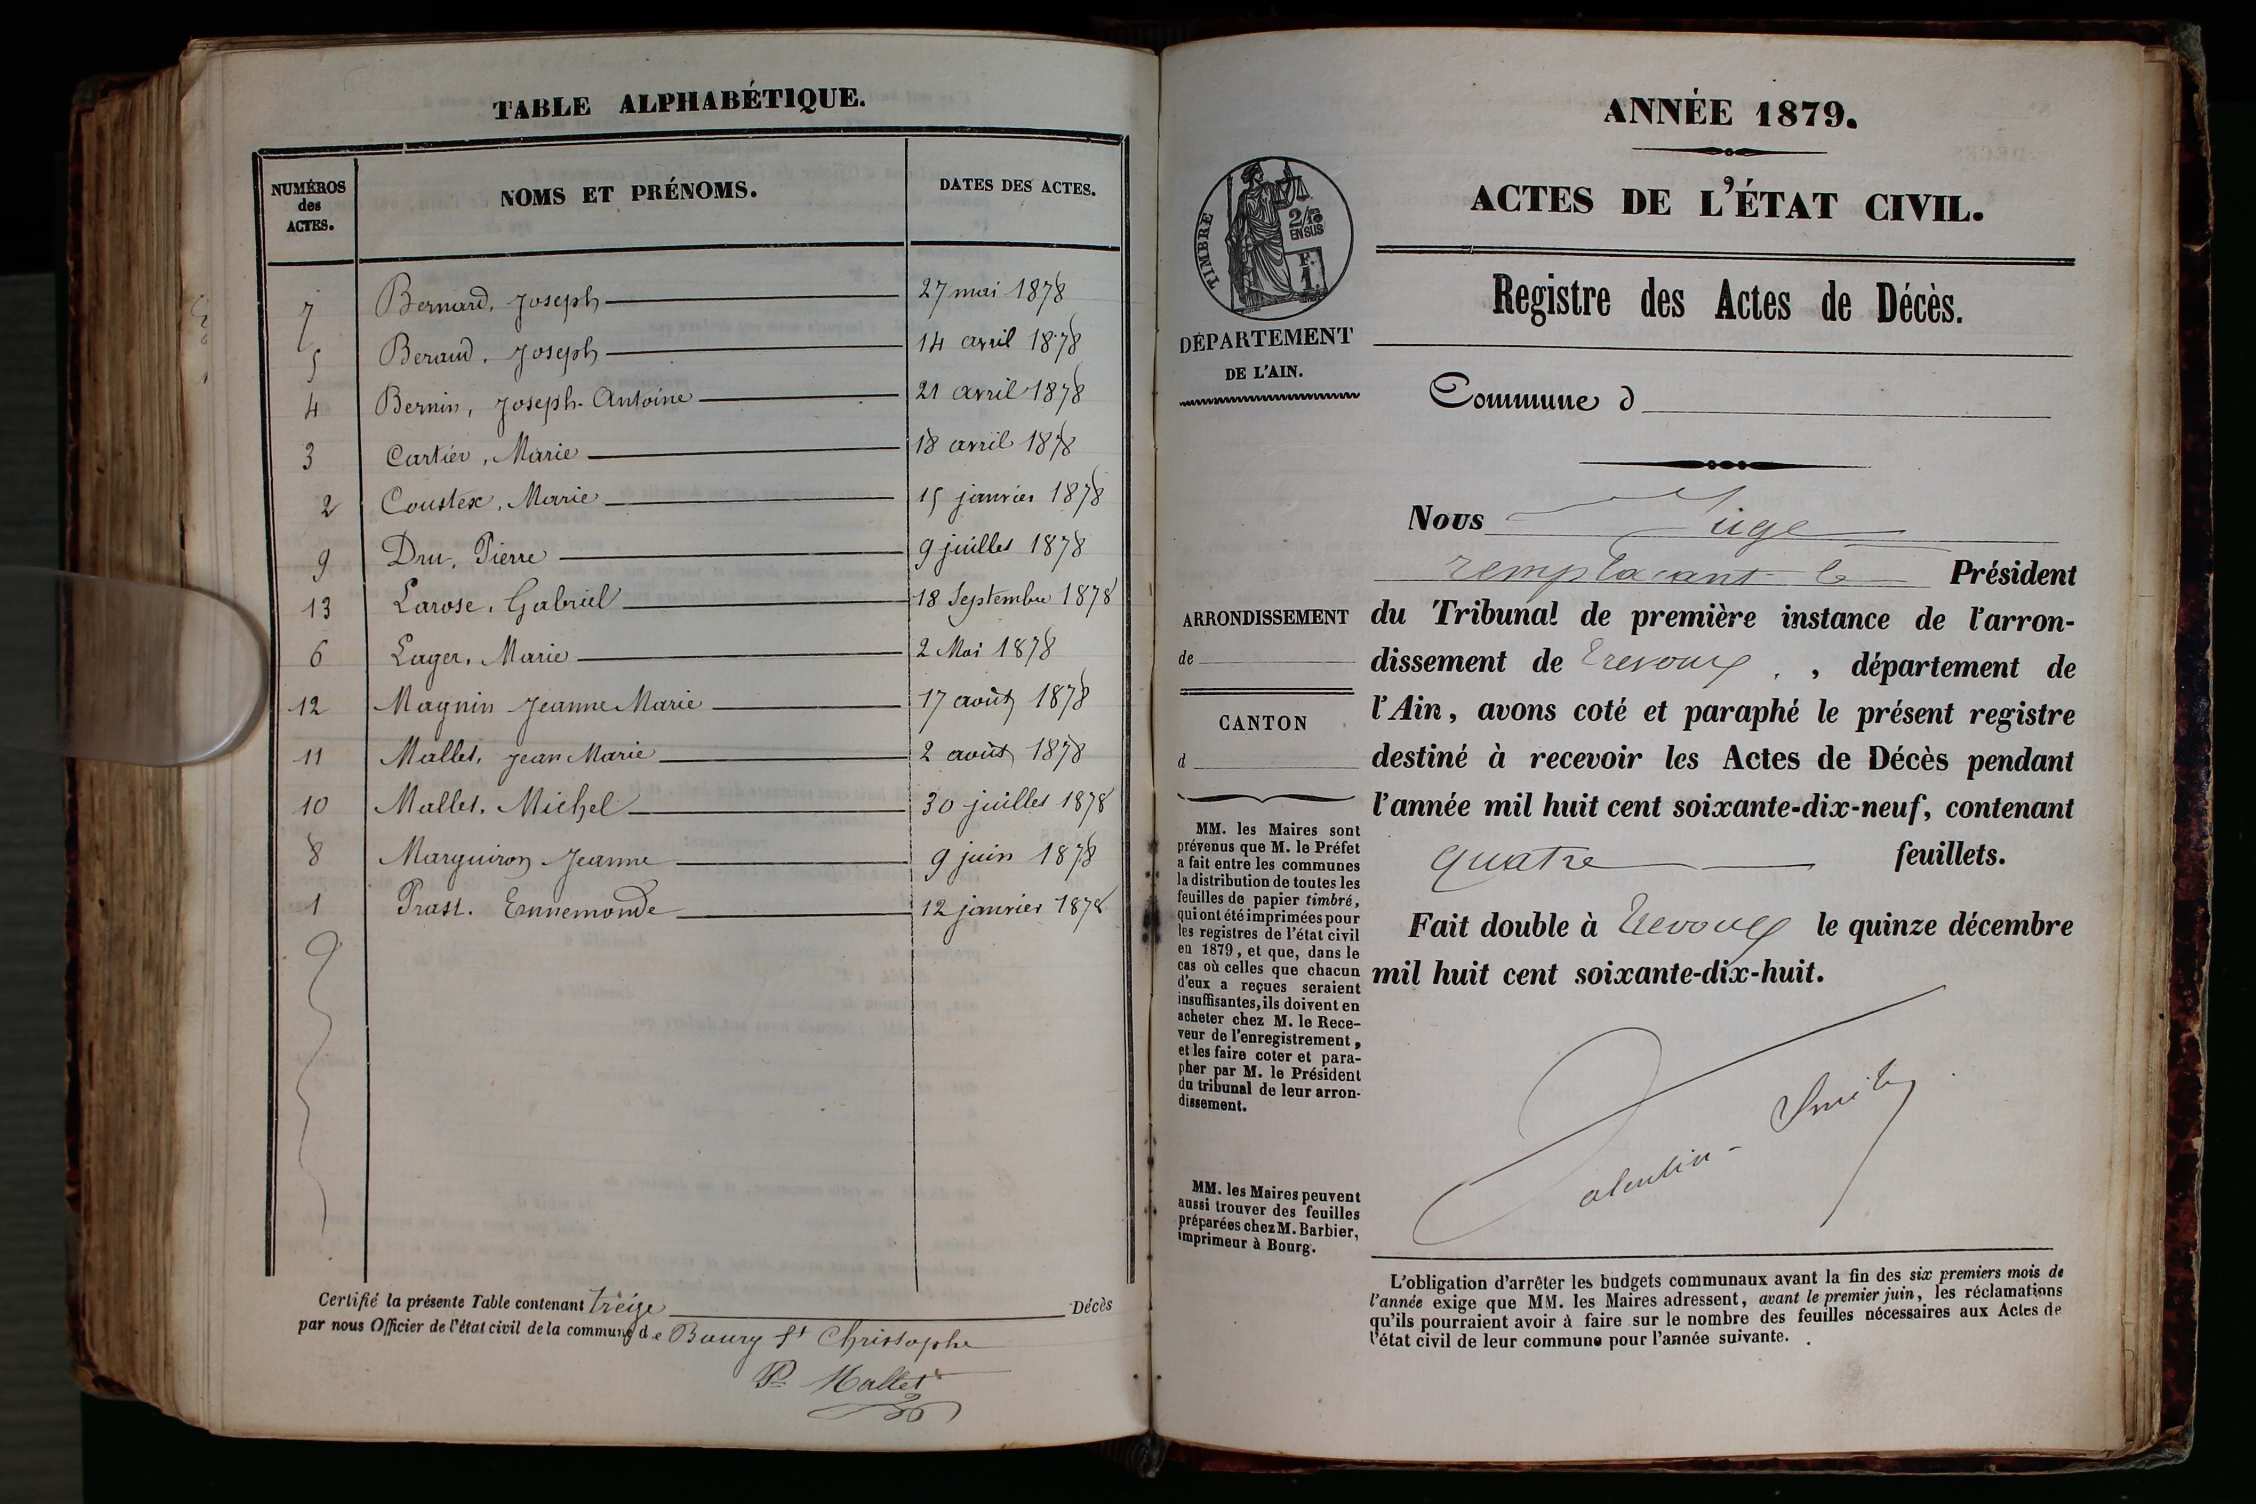 TABLE ALPHABÉTIQUE.
NUMÉROS des ACTES. NOMS ET PRÉNOMS. DATES DES ACTES.
7 Bernard, Joseph 27 mai 1878
5 Beraud, Joseph 14 avril 1878
4 Bernin, Joseph-Antoine 21 avril 1878
3 Cartier, Marie 18 avril 1878
2 Coustex, Marie 15 janvier 1878
9 Dru, Pierre 9 juillet 1878
13 Larose, Gabriel 18 Septembre 1878
6 Lager, Marie 2 Mai 1878
12 Magnin Jeanne Marie 17 août 1878
11 Mallet, Jean Marie 2 août 1878
10 Mallet, Michel 30 juillet 1878
8 Marguiron Jeanne 9 juin 1878
1 Prast. Ennemonde 12 janvier 1878
Certifié la présente Table contenant treize Décès
par nous Officier de l'état civil de la commune de Bourg St Christophe
Pre Mallet
ANNÉE 1879.
ACTES DE L'ÉTAT CIVIL.
TIMBRE
2/10
EN SUS
F.
1.
DÉPARTEMENT
DE L'AIN.
ARRONDISSEMENT
de
CANTON
d
MM. les Maires sont
prévenus que M. le Préfet
a fait entre les communes
la distribution de toutes les
feuilles de papier timbré,
qui ont été imprimées pour
les registres de l'état civil
en 1879, et que, dans le
cas où celles que chacun
d'eux a reçues seraient
insuffisantes, ils doivent en
acheter chez M. le Rece-
veur de l'enregistrement,
et les faire coter et para-
pher par M. le Président
du tribunal de leur arron-
dissement.
MM. les Maires peuvent
aussi trouver des feuilles
préparées chez M. Barbier,
imprimeur à Bourg.
Registre des Actes de Décès.
Commune d
Nous Juge
remplaçant le Président
du Tribunal de première instance de l'arron-
dissement de Trevoux, département de
l'Ain, avons coté et paraphé le présent registre
destiné à recevoir les Actes de Décès pendant
l'année mil huit cent soixante-dix-neuf, contenant
quatre feuillets.
Fait double à Trevoux le quinze décembre
mil huit cent soixante-dix-huit.
Valentin-Smith
L'obligation d'arrêter les budgets communaux avant la fin des six premiers mois de
l'année exige que MM. les Maires adressent, avant le premier juin, les réclamations
qu'ils pourraient avoir à faire sur le nombre des feuilles nécessaires aux Actes de
l'état civil de leur commune pour l'année suivante.